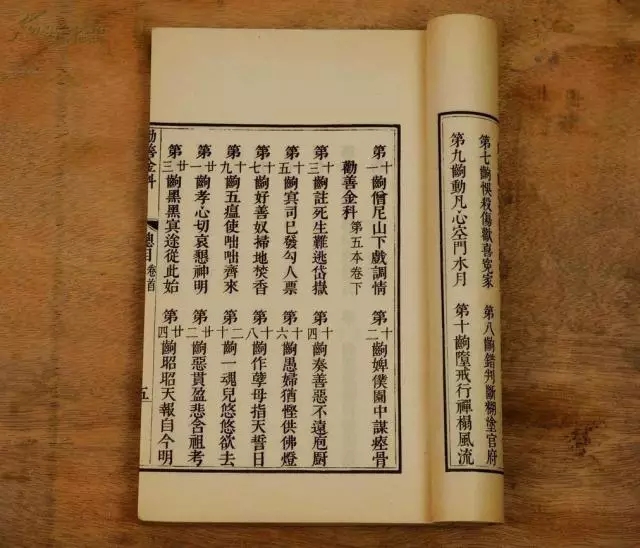 第七齣快殺傷歡喜冤家 第八齣錯判斷糊塗官府
第九齣動凡心空門水月 第十齣隳戒行禪榻風流
第十一齣僧尼山下戲調情 第十二齣婢僕園中謀瘞骨
勸善金科 第五本卷下
第十三齣註死生難逃岱嶽 第十四齣奏善惡不遠庖厨
第十五齣冥司已發勾人票 第十六齣愚婦猶慳供佛燈
第十七齣好善奴掃地焚香 第十八齣作孽母指天誓日
第十九齣五瘟使咄咄齊來 第二十齣一魂兒悠悠欲去
第廿一齣孝心切哀懇神明 第廿二齣惡貫盈悲含祖考
第廿三齣黑黑冥途從此始 第廿四齣昭昭天報自今明
勸善金科 總目 卷首 五